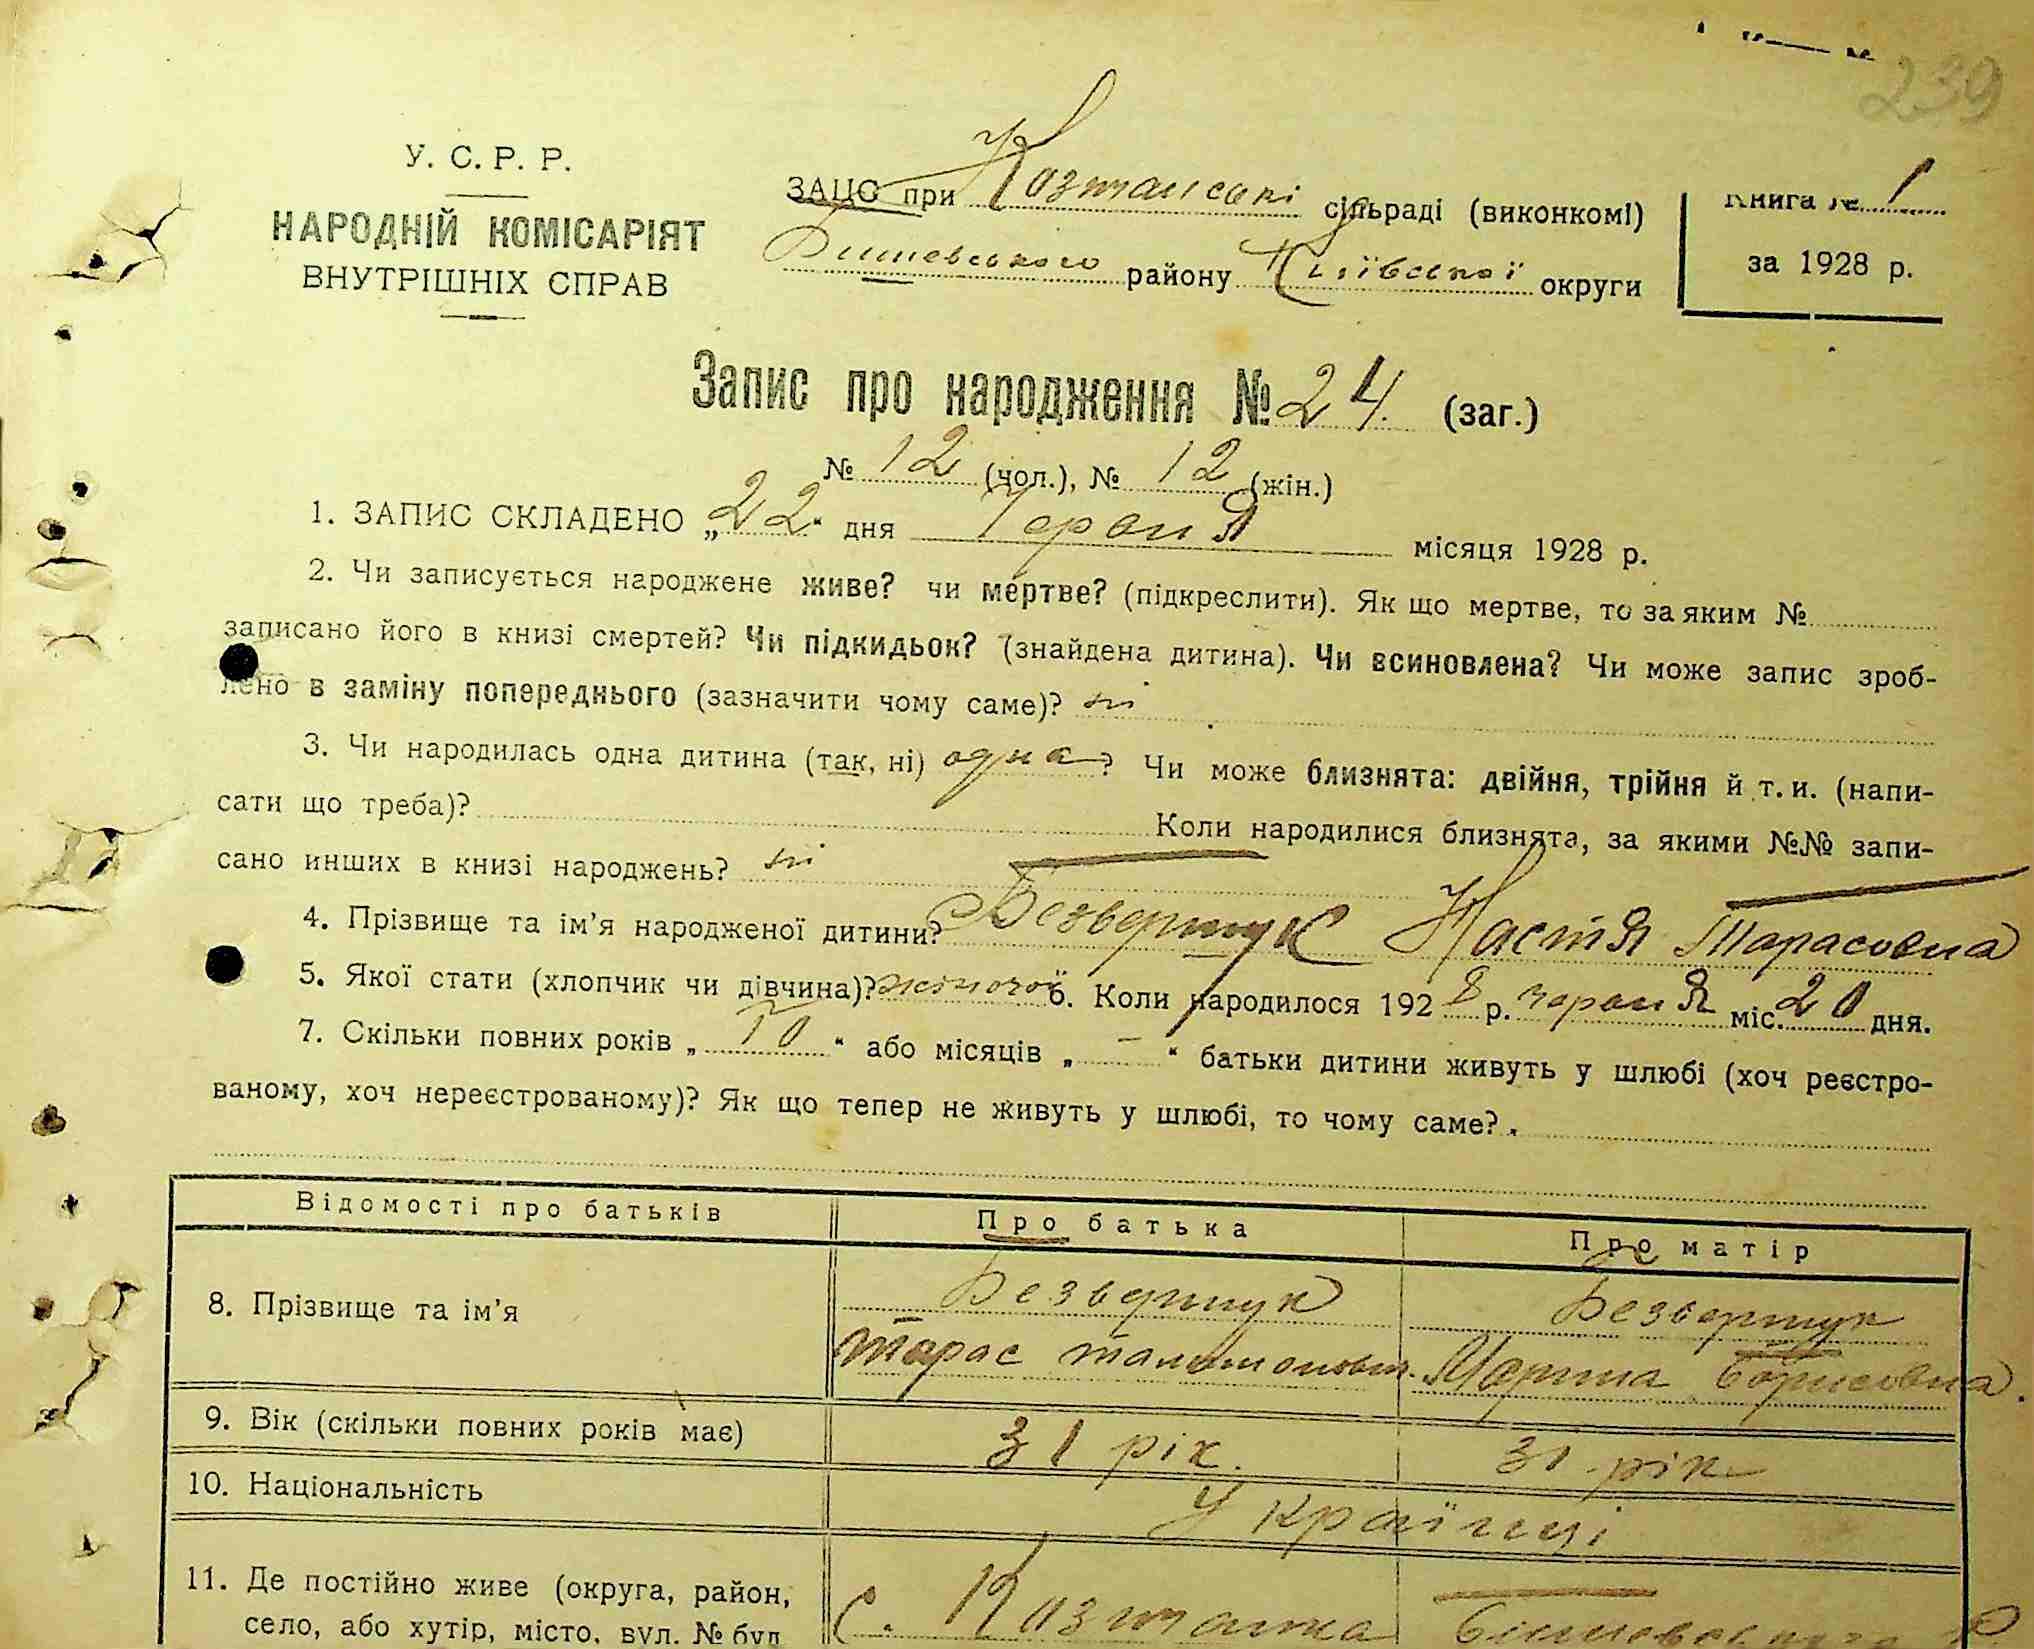 239
У. С. Р. Р.
НАРОДНІЙ КОМІСАРІЯТ
ВНУТРІШНІХ СПРАВ
ЗАЦС при сільраді (виконкомі)
району Київської округи
Книга № 1
за 1928 р.
Запис про народження № 24. (заг.)
№ 12 (чол.), № 12 (жін.)
1. ЗАПИС СКЛАДЕНО „22“ дня Червня місяця 1928 р.
2. Чи записується народжене живе? чи мертве? (підкреслити). Як що мертве, то за яким №
записано його в книзі смертей? Чи підкидьок? (знайдена дитина). Чи всиновлена? Чи може запис зроб-
лено в заміну попереднього (зазначити чому саме)? ні
3. Чи народилась одна дитина (так, ні) одна? Чи може близнята: двійня, трійня й т. и. (напи-
сати що треба)? Коли народилися близнята, за якими №№ запи-
сано инших в книзі народжень? ні
4. Прізвище та ім’я народженої дитини? Безвершук Настя Тарасовна
5. Якої стати (хлопчик чи дівчина)? жіночої 6. Коли народилося 1928 р. червня міс. 20 дня.
7. Скільки повних років „10“ або місяців „-“ батьки дитини живуть у шлюбі (хоч реєстро-
ваному, хоч нереєстрованому)? Як що тепер не живуть у шлюбі, то чому саме?
Відомості про батьків Про батька Про матір
8. Прізвище та ім’я Безвершук Безвершук
Тарас Марина Борисовна.
9. Вік (скільки повних років має) 31 рік. 31 рік
10. Національність Українці
11. Де постійно живе (округа, район,
село, або хутір, місто, вул. № буд с.